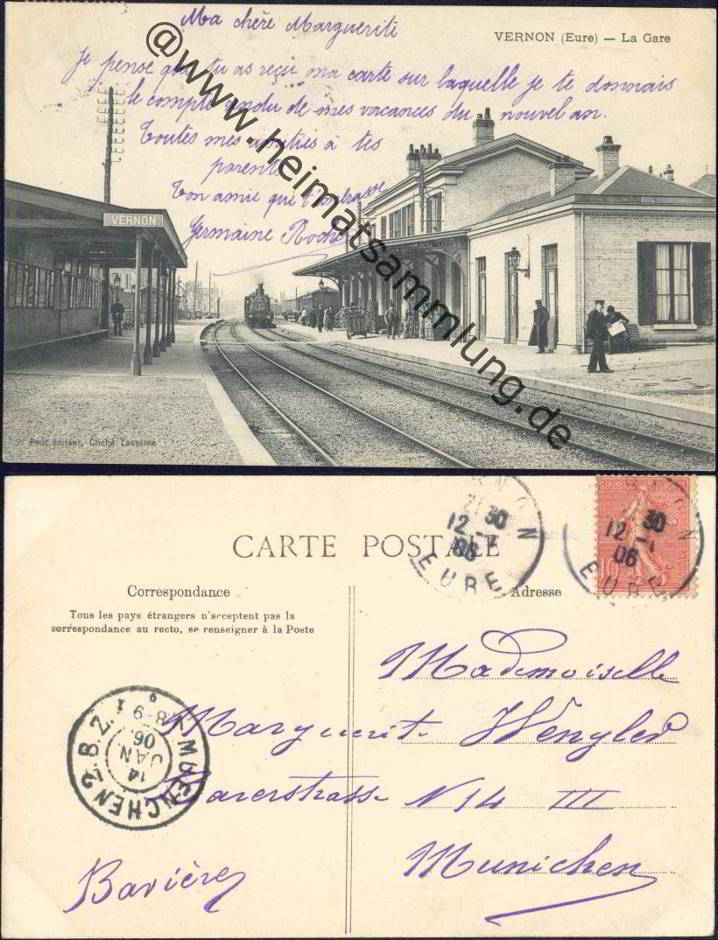 Ma chère Marguerite
VERNON (Eure) — La Gare
Je pense que tu as reçu ma carte sur laquelle je te donnais
le compte rendu de mes vacances du nouvel an.
Toutes mes amitiés à tes
parents
Ton amie qui t'embrasse
Germaine Roche
VERNON
Petit éditeur, Cliché Lasseine
@www.heimatsammlung.de
CARTE POSTALE
Correspondance
Tous les pays étrangers n'acceptent pas la
correspondance au recto, se renseigner à la Poste
Adresse
VERNON
12 -1
30
06
EURE
12 -1
30
06
EURE
Mademoiselle
Marguerite Wengler
strasse N 14 III
Munichen
Bavière
MUENCHEN 2. B.Z.
14
JAN
06
8-9